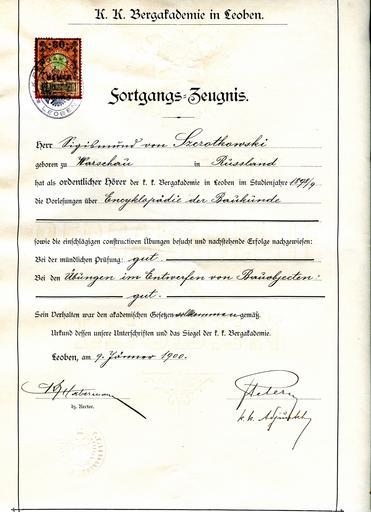 K. K. Bergakademie in Leoben.
LEOBEN
Fortgangs-Zeugnis.
Herr Sigismund von Szerothowski
geboren zu Warschau in Russland
hat als ordentlicher Hörer der k. k. Bergakademie in Leoben im Studienjahre 1898/9
die Vorlesungen über Encyklopädie der Baukunde
sowie die einschlägigen constructiven Übungen besucht und nachstehende Erfolge nachgewiesen:
Bei der mündlichen Prüfung: gut.
Bei den Übungen im Entwerfen von Bauobjecten:
gut.
Sein Verhalten war den akademischen Gesetzen vollkommen gemäß.
Urkund dessen unsere Unterschriften und das Siegel der k. k. Bergakademie.
Leoben, am 9. Jänner 1900.
Habermann
dz. Rector.
k. k. Adjunkt